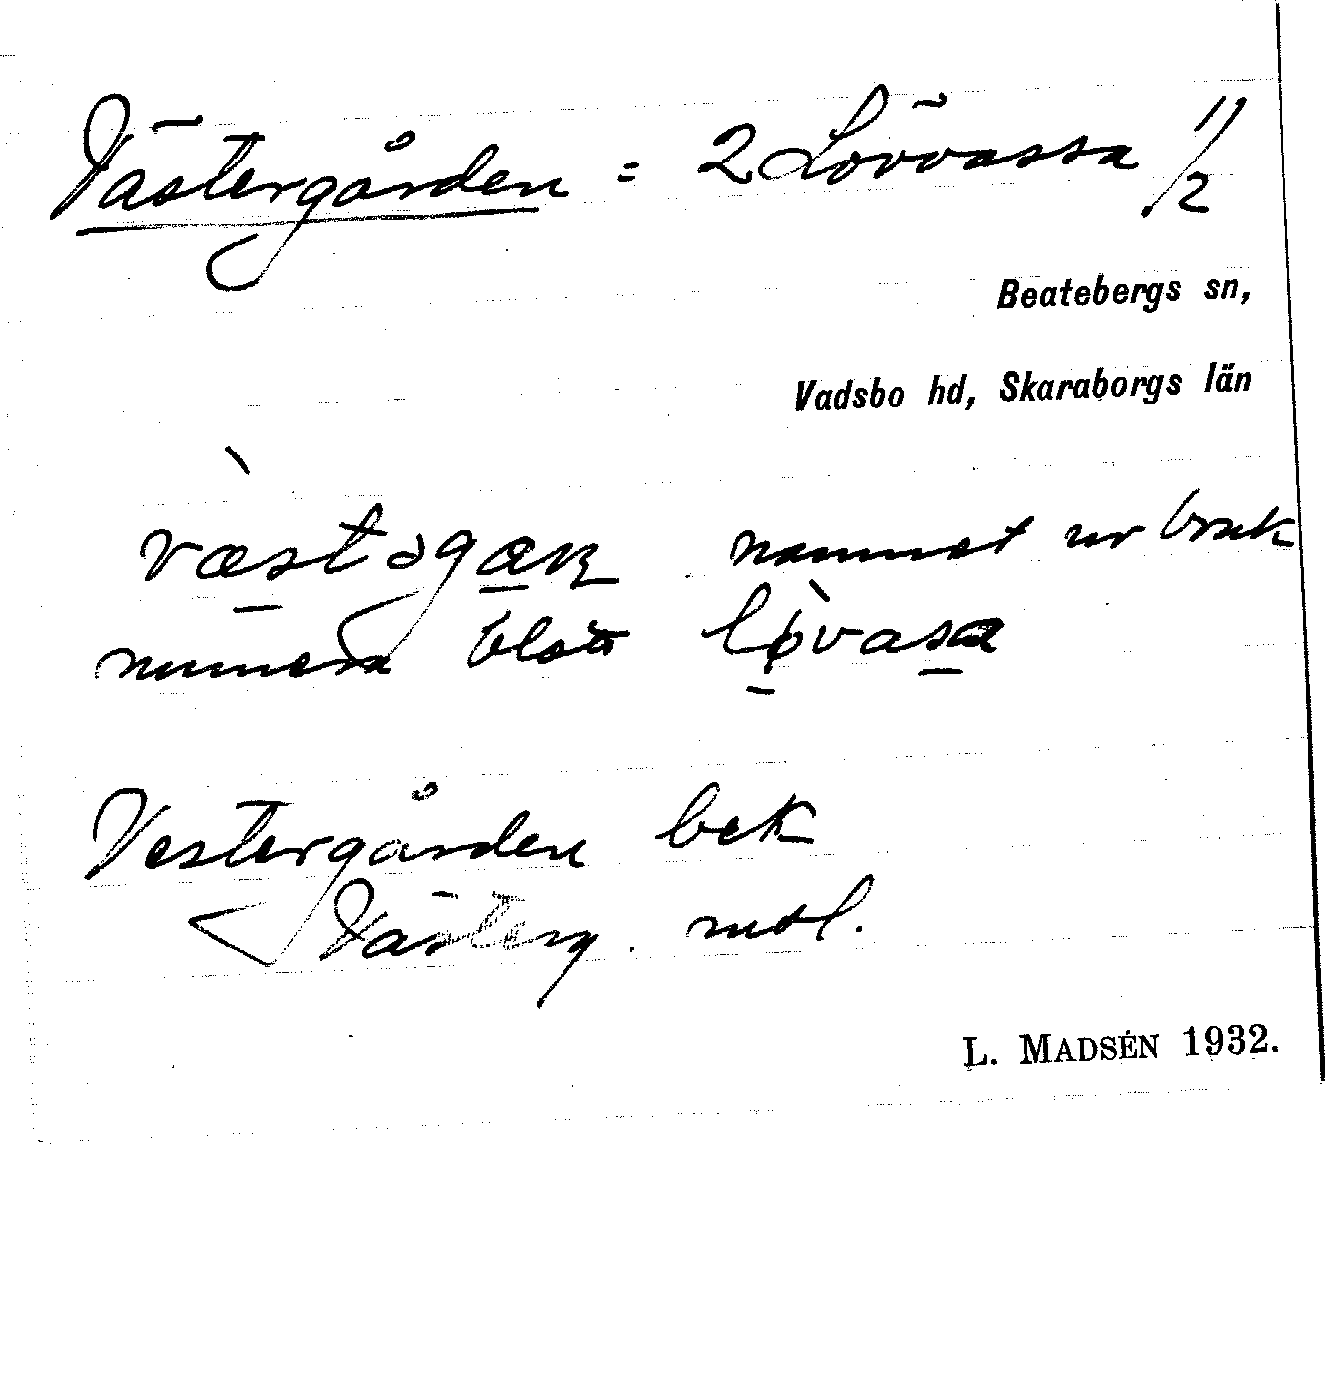 Västergården = 2 Lövvassa 1/2
Beatebergs sn,
Vadsbo hd, Skaraborgs län
væstəgan namnet ur bruk
numera blott lǿvasa
Vestergården bek
Västerg. mtl.
L. MADSÉN 1932.